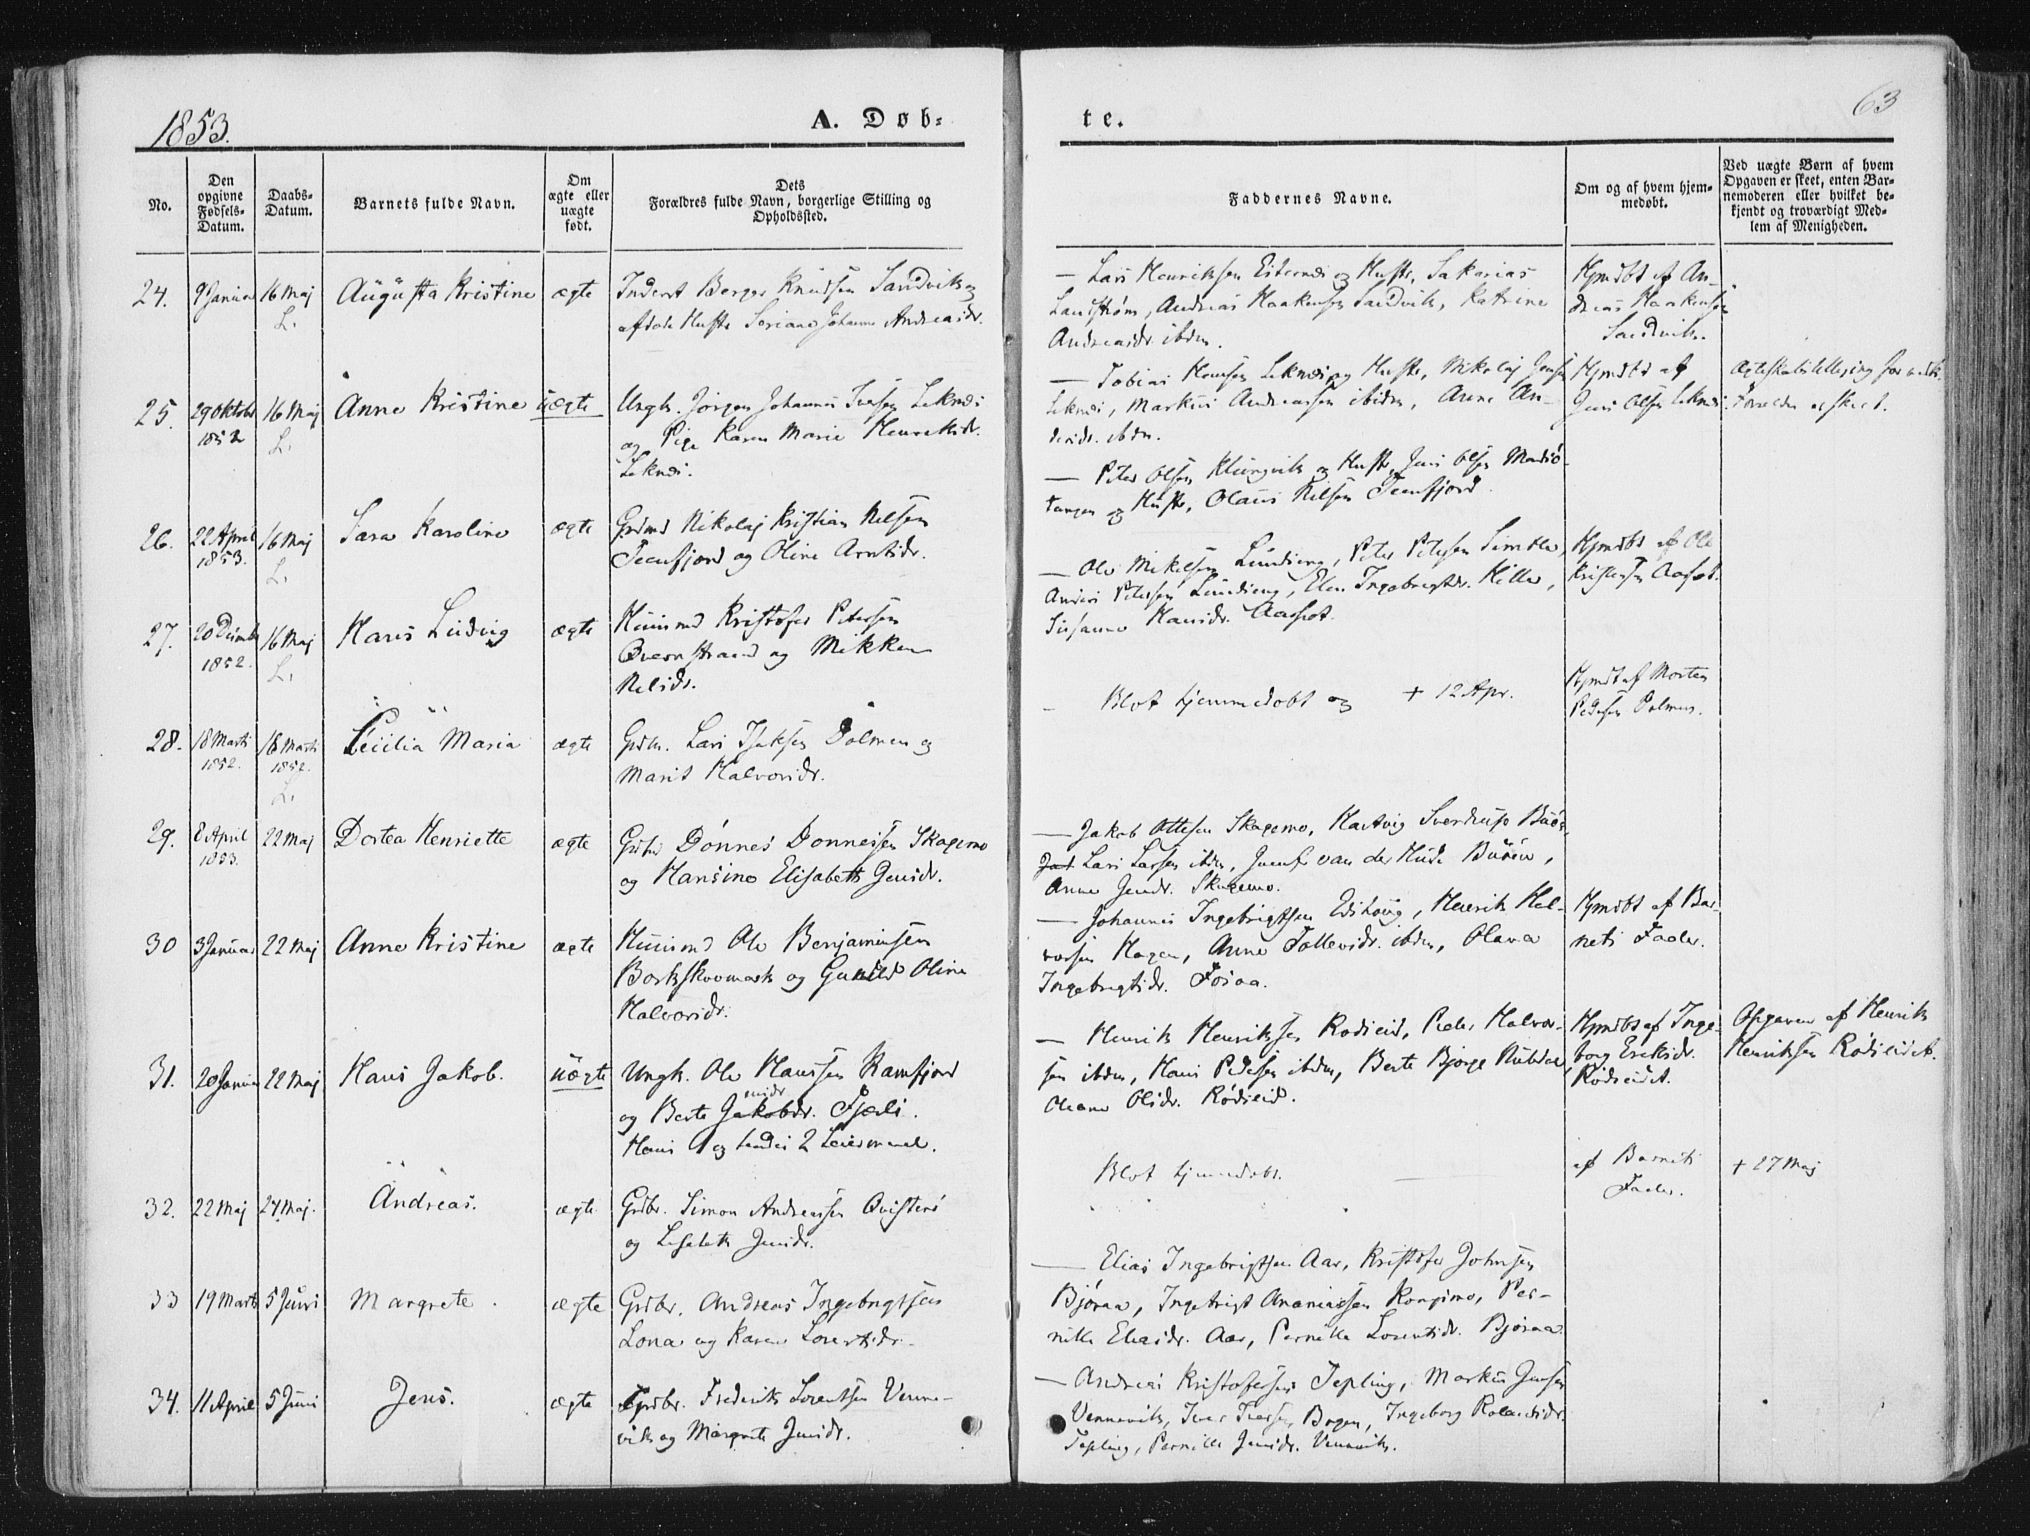 1853.
A. Døb-
te.
63
No.
Den opgivne Fødsels-Datum.
Daabs-Datum.
Barnets fulde Navn.
Om ægte eller uægte født.
Dets Forældres fulde Navn, borgerlige Stilling og Opholdssted.
Faddernes Navne.
Om og af hvem hjem-medøbt.
Ved uægte Børn af hvem Opgaven er skeet, enten Bar-nemoderen eller hvilket be-kjendt og troværdigt Med-lem af Menigheden.
24. 9 Januar 16 Maj Augusta Kristine ægte Inderst Berger Knudsen Sandvik og
L. afdøde Hustr Johanna Andreasdr.
— Lars Henriksen og Hustr, Sakarias
Landstrøm, Andreas Haakensen Sandvik, Katrine
Andreasdr. ibdm.
Hjmdbt af An-
dreas Haakensen
Sandvik.
25. 29 Oktobr 16 Maj Anne Kristine uægte Ungk. Jørgen Johannes Iversen Leknes
1852 L. og Pige Karen Marie Henriksdr.
Leknes.
— Tobias Hansen Leknes og Hustr, Nikolaj Jensen
Leknes, Markus Andreassen ibidm, Anne An-
dersdr. ibdm.
Hjmdbt af
Jens Olsen Leknes.
Forældre er skeet.
26. 22 April 16 Maj Sara Karoline ægte Grdmd Nikolaj Kristian Nelsen
1853. L. Teenfjord og Oline Arntsdr.
— Peter Olsen Klungvik og Hustr, Jens Olsen
tangen og Hustr, Olaus Nelsen Teenfjord.
27. 20 Decembr 16 Maj Hans Ludvig ægte Huusmd Kristofer Petersen
1852. L. Qvernstrand og Mikken
Nelsdr.
— Ole Mikelsen Lundieng, Peter Petersen Simkle,
Anders Petersen Lundieng, Elen Ingebrigtdr. Hille,
Susanne Hansdr. Aasfot.
Hjmdbt af Ole
Kristensen Aasfot.
28. 18 Marts 18 Marts Cecilia Maria ægte Grdbr. Lars Isaksen Dolmen og
1852. 1852. Marit Halvorsdr.
L.
— Blot hjemmedøbt og + 12 Apr.
Hjmdt af Morten
Pedersen Dolmen.
29. 8 April 22 Maj Dortea Henriette ægte Grdbr Dønnes Dønnessen Skagemo
1853. og Hansine Elisabeth Jensdr.
— Jakob Ottesen Skagemo, Hartvig Sverdrup
Lars Larsen ibdm, Jomfr van der Hude Buøen,
Anne Jensdr. Skagemo.
30 3 Januar 22 Maj Anne Kristine ægte Huusmd Ole Benjaminsen
Borkskovmark og Gunild Oline
Halvorsdr.
— Johannes Ingebrigtsen Edshoug, Henrik Hal-
vorsen Hagen, Anne Tollevsdr. ibdm, Olava
Ingebrigtsdr. Fosaa.
Hjmdbt af Bar-
nets Fader.
31. 20 Januar 22 Maj Hans Jakob. uægte Ungk. Ole Hanssen Ranfjord
og Berte Jakobdr. Fjerli.
Hans 1 og hendes 2 Leiermaal.
— Henrik Henriksen Rødseid, Peder Halvor-
sen ibdm, Hans Pedersen ibdm, Berte Bjørge
Oleane Olsdr. Rødseid.
Hjmdbt af Inge-
borg Eriksdr.
Rødseidet.
Opgaven af Henrik
Henriksen Rødseidet.
32. 22 Maj 24 Maj. Andreas. ægte Grdbr. Simon Andreassen Qvisteng
og Lisabeth Jensdr.
Blot hjemmedøbt. —
af Barnets
Fader.
+ 27 Maj
33 19 Marts 5 Juni Margrete. ægte Grdbr. Andreas Ingebrigtsen
Lona og Karen Lorentsdr.
— Elias Ingebrigtsen Aar, Kristofer Johnsen
Bjøraa, Ingebrigt Ananiassen Kongsmo, Per-
nille Eliasdr. Aar, Pernille Lorentsdr. Bjøraa.
34. 11 April 5 Juni Jens. ægte Grdbr. Frederik Lorentsen Venne-
vik og Margrete Jensdr.
— Andreas Kristofersen Tepling, Markus Jensen
Vennevik, Iver Iversen Bogen, Ingeborg
Tepling, Pernille Jensdr. Vennevik.